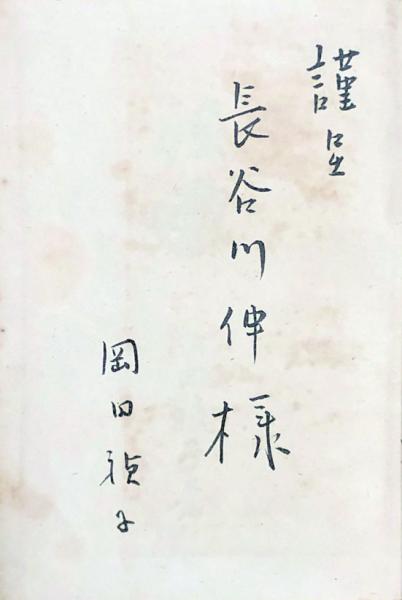 謹呈
長谷川伸様
岡田禎子